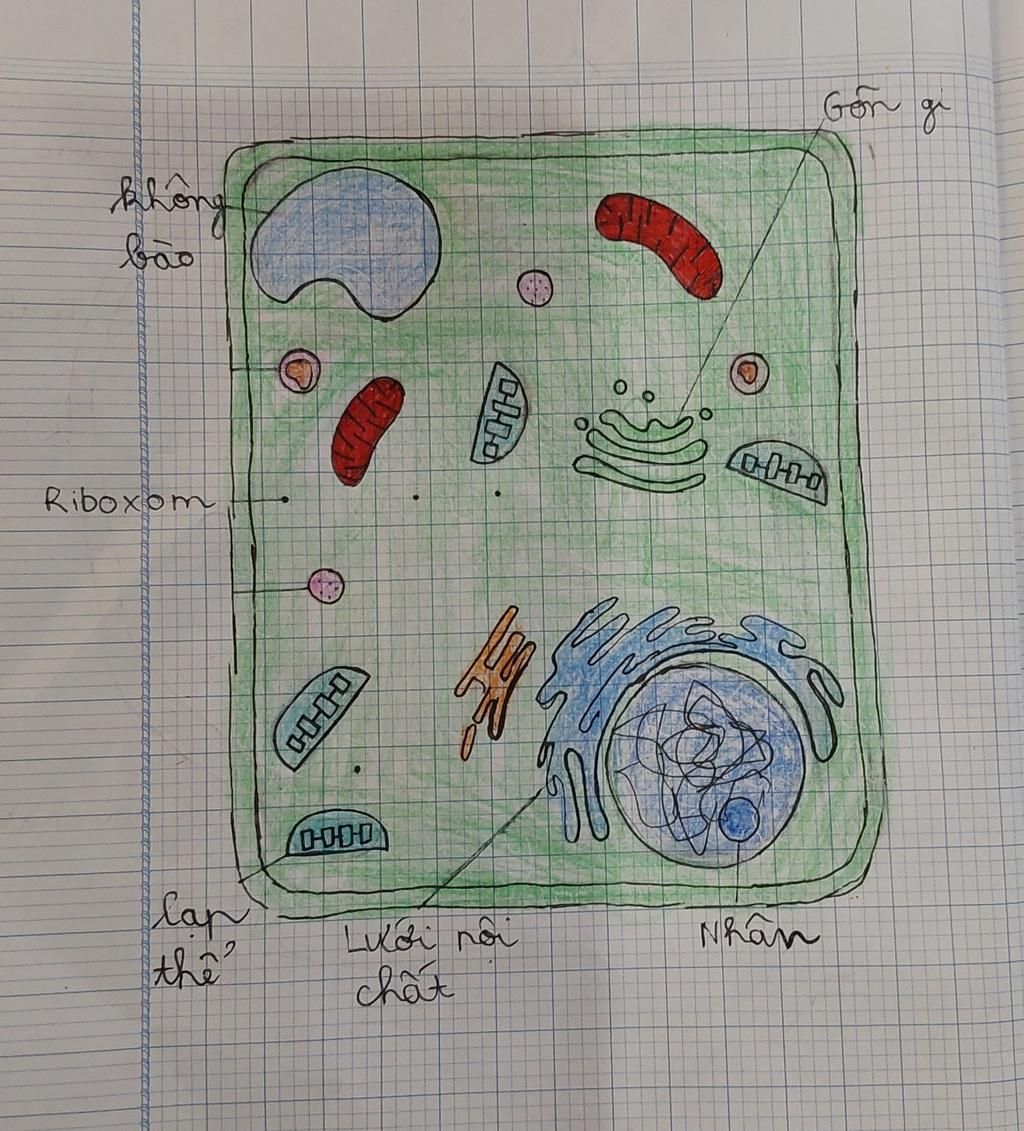 Gôn gi
không
bào
Riboxom
Lạp
thể
Lưới nội
chất
Nhân